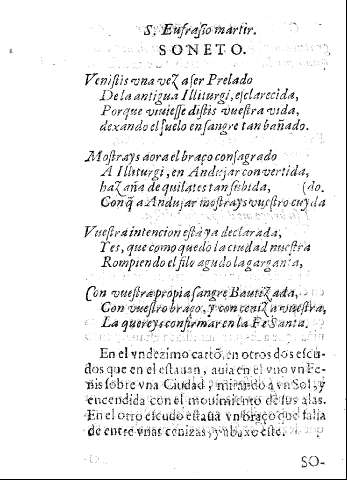 S. Eufrasio martir.
SONETO.
Venistis vna vez a ser Prelado
De la antigua Illiturgi, esclarecida,
Porque viuiesse distis vuestra vida,
dexando el suelo en sangre tan bañado.
Mostrays aora el braço consagrado
A Illiturgi, en Andujar conuertida,
hazaña de quilates tan subida, (do.
Conq̃ a Andujar mostrays vuestro cuyda
Vuestra intencion està ya declarada,
Yes, que como quedo la ciudad nuestra
Rompiendo el filo agudo la garganta,
Con vuestra propia sangre Bautizada,
Con vuestro braço, y con ceniza vuestra,
La quereys confirmar en la Fe Santa.
En el vndezimo cartõ, en otros dos escu-
dos que en el estauan, auia en el vno vn Fe-
nis sobre vna Ciudad, mirando a vn Sol, y
encendida con el mouimiento de sus alas.
En el otro escudo estaua vn braço que salia
de entre vnas cenizas, y abaxo este.
SO-